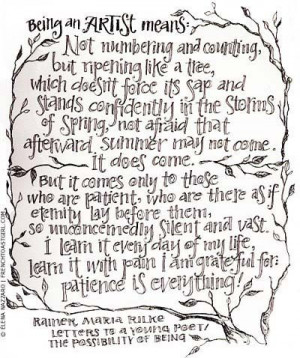 Being an ARTIST means:
Not numbering and counting,
but ripening like a tree,
which doesn't force its sap and
stands confidently in the storms
of Spring, not afraid that
afterward summer may not come.
It does come.
But it comes only to those
who are patient, who are there as if
eternity lay before them,
so unconcernedly silent and vast.
I learn it every day of my life,
learn it with pain I am grateful for:
patience is everything!
RAINER MARIA RILKE
LETTERS TO A YOUNG POET/
THE POSSIBILITY OF BEING